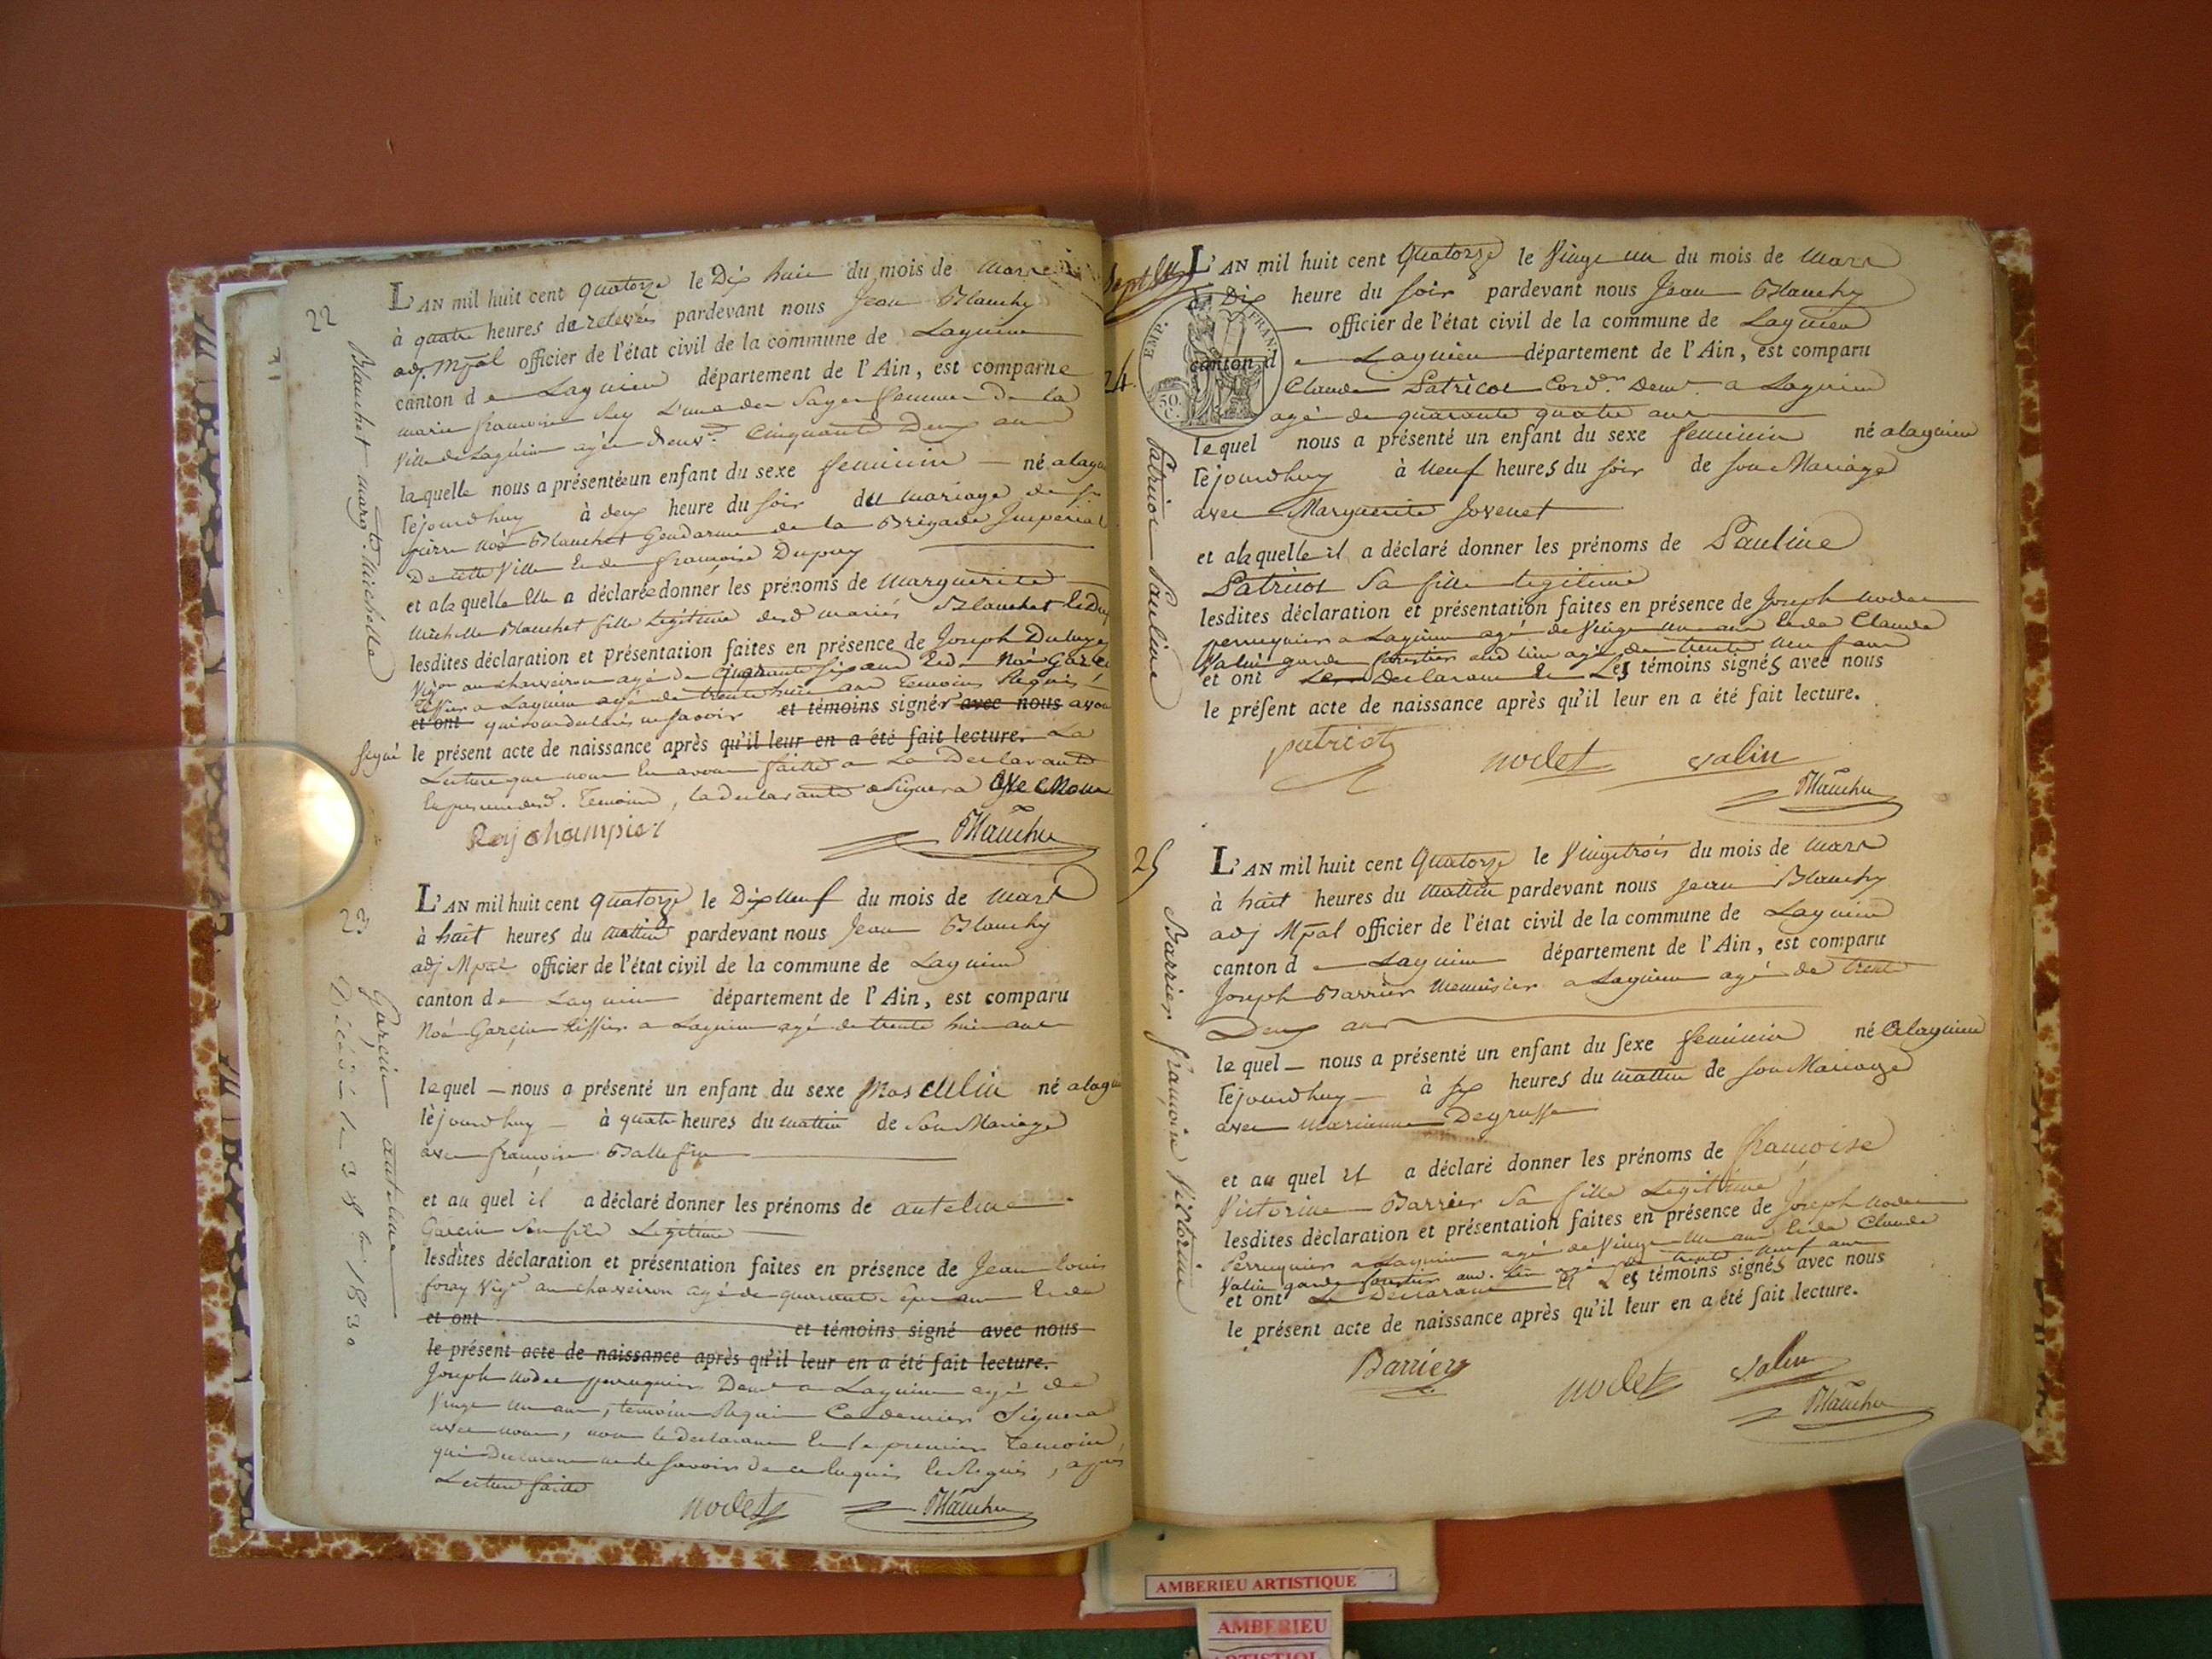 22
Blanchet marg.te Michelle
L'AN mil huit cent quatorze le Dix huit du mois de mars
à quatre heures de relevée pardevant nous Jean Blanchy
adj. Mpal officier de l'état civil de la commune de Lagnieu
canton de Lagnieu département de l'Ain, est comparue
marie françoise Rey L'une des Sages femmes de la
Ville de Lagnieu agée de cinquante Deux ans
laquelle nous a présenté un enfant du sexe feminin né a lagnieu
cejourdhuy à deux heure du soir du mariage de
pierre Noé Blanchet Gendarme de la Brigade Imperial
De cette Ville et de françoise Dupuy
et alaquelle Elle a déclarée donner les prénoms de Marguerite
Michelle Blanchet fille Légitime desd. mariés Blanchet
lesdites déclaration et présentation faites en présence de Joseph
agé de ans et de Noé Garcin
Tissier a Lagnieu agé de trente huit ans Temoins Requis
et ont qui ont declaré ne savoir et témoins signér avec nous avons
signé le présent acte de naissance après qu'il leur en a été fait lecture. La
Lecture que nous En avons faitte a La Declarante
En presence desd. Temoins, la declarante a Signera avec Nous
Rey champier
Blanchy
23
Garcin antelme
Décédé le 3 8bre 1830
L'AN mil huit cent quatorze le Dix Neuf du mois de mars
à huit heures du mattin pardevant nous Jean Blanchy
adj Mpal officier de l'état civil de la commune de Lagnieu
canton de Lagnieu département de l'Ain, est comparu
Noé Garçin tissier a Lagnieu agé de trente huit ans
lequel nous a présenté un enfant du sexe Masculin né a lagnieu
cejourdhuy à quatre heures du mattin de Son Mariage
avec françoise Ballefin
et au quel il a déclaré donner les prénoms de antelme
Garcin Son fils Legitime
lesdites déclaration et présentation faites en présence de Jean Louis
foray Vig. au charveiron agé de quarante sept ans Et de
et ont et témoins signé avec nous
le présent acte de naissance après qu'il leur en a été fait lecture.
Joseph nodet perruquier Dem.t a Lagnieu agé de
Vingt un ans, temoins Requis Ce dernier Signera
avec nous, non le declarant Et le premier Temoin,
qui Declarent ne le savoir De ce Enquis Et Requis, apres
Lecture faite
nodet
Blanchy
Sept
EMP. FRAN.
50. C.
24.
Patricot Pauline
L'AN mil huit cent Quatorze le Vingt un du mois de mars
à Dix heure du soir pardevant nous Jean Blanchy
officier de l'état civil de la commune de Lagnieu
canton de Lagnieu département de l'Ain, est comparu
Claude Patricot Cord.er Dem.t a Lagnieu
agé de quarante quatre ans
lequel nous a présenté un enfant du sexe feminin né a lagnieu
cejourdhuy à Neuf heures du soir de son Mariage
avec Marguerite Jovenet
et alaquelle il a déclaré donner les prénoms de Pauline
Patricot Sa fille legitime
lesdites déclaration et présentation faites en présence de Joseph nodet
perruquier a Lagnieu agé de Vingt un ans Et de Claude
Valin garde forestier aud lieu agé de trente neuf ans
et ont Le Declarant et Les témoins signés avec nous
le présent acte de naissance après qu'il leur en a été fait lecture.
patricot
nodet
valin
Blanchy
25
Barrier françoise Victorine
L'AN mil huit cent Quatorze le Vingttrois du mois de mars
à huit heures du mattin pardevant nous Jean Blanchy
adj Mpal officier de l'état civil de la commune de Lagnieu
canton de Lagnieu département de l'Ain, est comparu
Joseph Barrier Menuisier a Lagnieu agé de trente
Deux ans
lequel nous a présenté un enfant du sexe feminin né a lagnieu
cejourdhuy à six heures du mattin de son Mariage
avec marianne Degrusse
et au quel il a déclaré donner les prénoms de françoise
Victorine Barrier Sa fille Legitime
lesdites déclaration et présentation faites en présence de Joseph nodet
Perruquier a Lagnieu agé de Vingt un ans Et de Claude
Valin garde forestier aud. lieu agé de trente neuf ans
et ont Le Declarant et Les témoins signés avec nous
le présent acte de naissance après qu'il leur en a été fait lecture.
Barrier
nodet
valin
Blanchy
AMBERIEU ARTISTIQUE
AMBERIEU
ARTISTIQUE